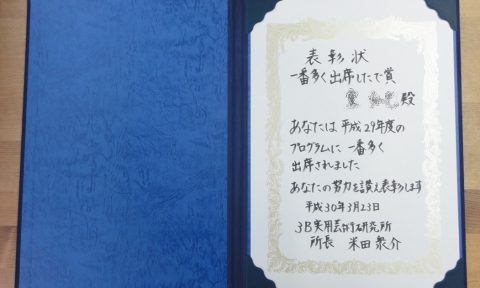 表彰状
一番多く出席したで賞
殿
あなたは平成29年度の
プログラムに一番多く
出席されました
あなたの努力を讃え表彰します
平成30年3月23日
3B実用芸術研究所
所長 米田衆介